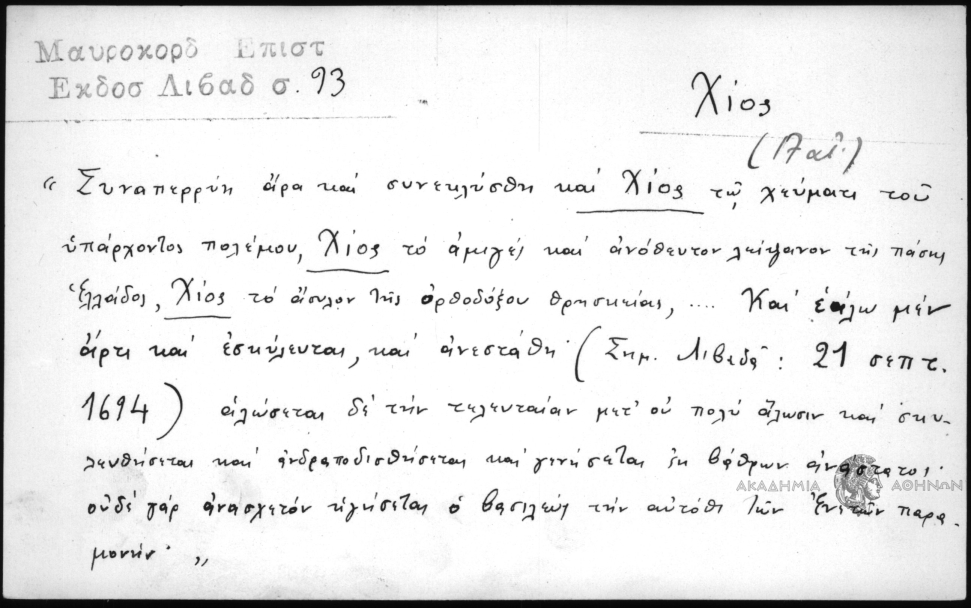 Μαυροκορδ Επιστ
Εκδοσ Λιβαδ σ. 93
Χίος
« Συναπερρύη ἄρα καὶ συνεκλύσθη καὶ Χίος τῷ χεύματι τοῦ
ὑπάρχοντος πολέμου, Χίος τὸ ἀμιγές καὶ ἀνόθευτον λείψανον τῆς πάσης
Ἑλλάδος, Χίος τὸ ἄσυλον τῆς ὀρθοδόξου θρησκείας, .... Καὶ ἑάλω μέν
ἄρτι καὶ ἐσκύλευται, καὶ ἀνεστάθη (Σημ. Λιβαδᾶ : 21 σεπτ.
1694) ἁλώσεται δέ τὴν τελευταίαν μετ' οὐ πολύ ἅλωσιν καὶ σκυ-
λευθήσεται καὶ ἀνδραποδισθήσεται καὶ γενήσεται ἐκ βάθρων ἀνάστατος·
οὐδέ γάρ ἀνασχετόν ἡγήσεται ὁ βασιλεύς τὴν αὐτόθι τῶν Ἐνετῶν παρα-
μονήν. »
ΑΚΑΔΗΜΙΑ ΑΘΗΝΩΝ